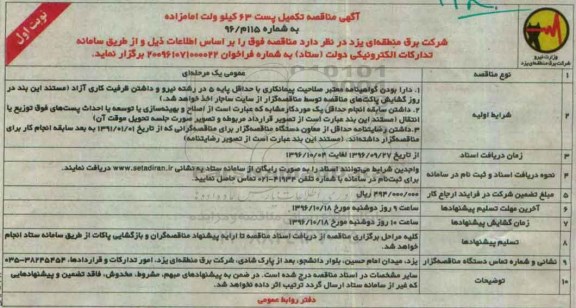 نوبت اول
آگهی مناقصه تکمیل پست ۶۳ کیلو ولت امامزاده
به شماره ۹۶/۴۱۱۵
شرکت برق منطقه‌ای یزد در نظر دارد مناقصه فوق را بر اساس اطلاعات ذیل و از طریق سامانه
تدارکات الکترونیکی دولت (ستاد) به شماره فراخوان ۲۰۰۹۶۱۰۷۱۰۰۰۰۴۲ برگزار نماید.
وزارت نیرو
شرکت برق منطقه‌ای یزد
۱ نوع مناقصه عمومی یک مرحله‌ای
۲ شرایط اولیه
۱. دارا بودن گواهینامه معتبر صلاحیت پیمانکاری با حداقل پایه ۵ در رشته نیرو و داشتن ظرفیت کاری آزاد (مستند این بند در
روز گشایش پاکت‌های مناقصه توسط مناقصه‌گزار از سایت ساجار اخذ خواهد شد.)
۲. داشتن سابقه انجام حداقل یک مورد کار مشابه که عبارت است از اصلاح و بهینه‌سازی یا توسعه یا احداث پست‌های فوق توزیع یا
انتقال (مستند این بند عبارت است از تصویر قرارداد مربوطه و تصویر صورت جلسه تحویل موقت آن)
۳. داشتن رضایتنامه حداقل از معاون دستگاه مناقصه‌گزار برای مناقصه‌گرانی که از تاریخ ۱۳۹۱/۰۱/۰۱ به بعد سابقه انجام کار برای
مناقصه‌گزار داشته‌اند. (مستند این بند عبارت است از تصویر رضایتنامه)
۳ زمان دریافت اسناد از تاریخ ۱۳۹۶/۰۹/۲۷ لغایت ۱۳۹۶/۱۰/۰۴
۴ نحوه دریافت اسناد و ثبت نام در سامانه
واجدین شرایط می‌توانند اسناد را به صورت رایگان از سامانه ستاد به نشانی www.setadiran.ir دریافت نمایند.
برای ثبت‌نام در سامانه با شماره تلفن ۴۱۹۳۴-۰۲۱ تماس حاصل نمایید.
۵ مبلغ تضمین شرکت در فرایند ارجاع کار ۴۹۴/۰۰۰/۰۰۰ ریال
۶ آخرین مهلت تسلیم پیشنهادها ساعت ۹ روز دوشنبه مورخ ۱۳۹۶/۱۰/۱۸
۷ زمان گشایش پیشنهادها ساعت ۱۰ روز دوشنبه مورخ ۱۳۹۶/۱۰/۱۸
۸ تسلیم پیشنهادها
کلیه مراحل برگزاری مناقصه از دریافت اسناد مناقصه تا ارایه پیشنهاد مناقصه‌گران و بازگشایی پاکات از طریق سامانه ستاد انجام
خواهد شد.
۹ نشانی و شماره تماس دستگاه مناقصه‌گزار یزد، میدان امام حسین، بلوار دانشجو، بعد از پارک شادی، شرکت برق منطقه‌ای یزد، امور تدارکات و قراردادها، ۳۸۲۴۵۴۵۴-۰۳۵
۱۰ توضیحات
سایر مشخصات در اسناد مناقصه درج شده است. در ضمن به پیشنهادهای مبهم، مشروط، مخدوش، فاقد تضمین و پیشنهادهایی
که غیر از سامانه ستاد ارسال گردد ترتیب اثر داده نخواهد شد.
دفتر روابط عمومی